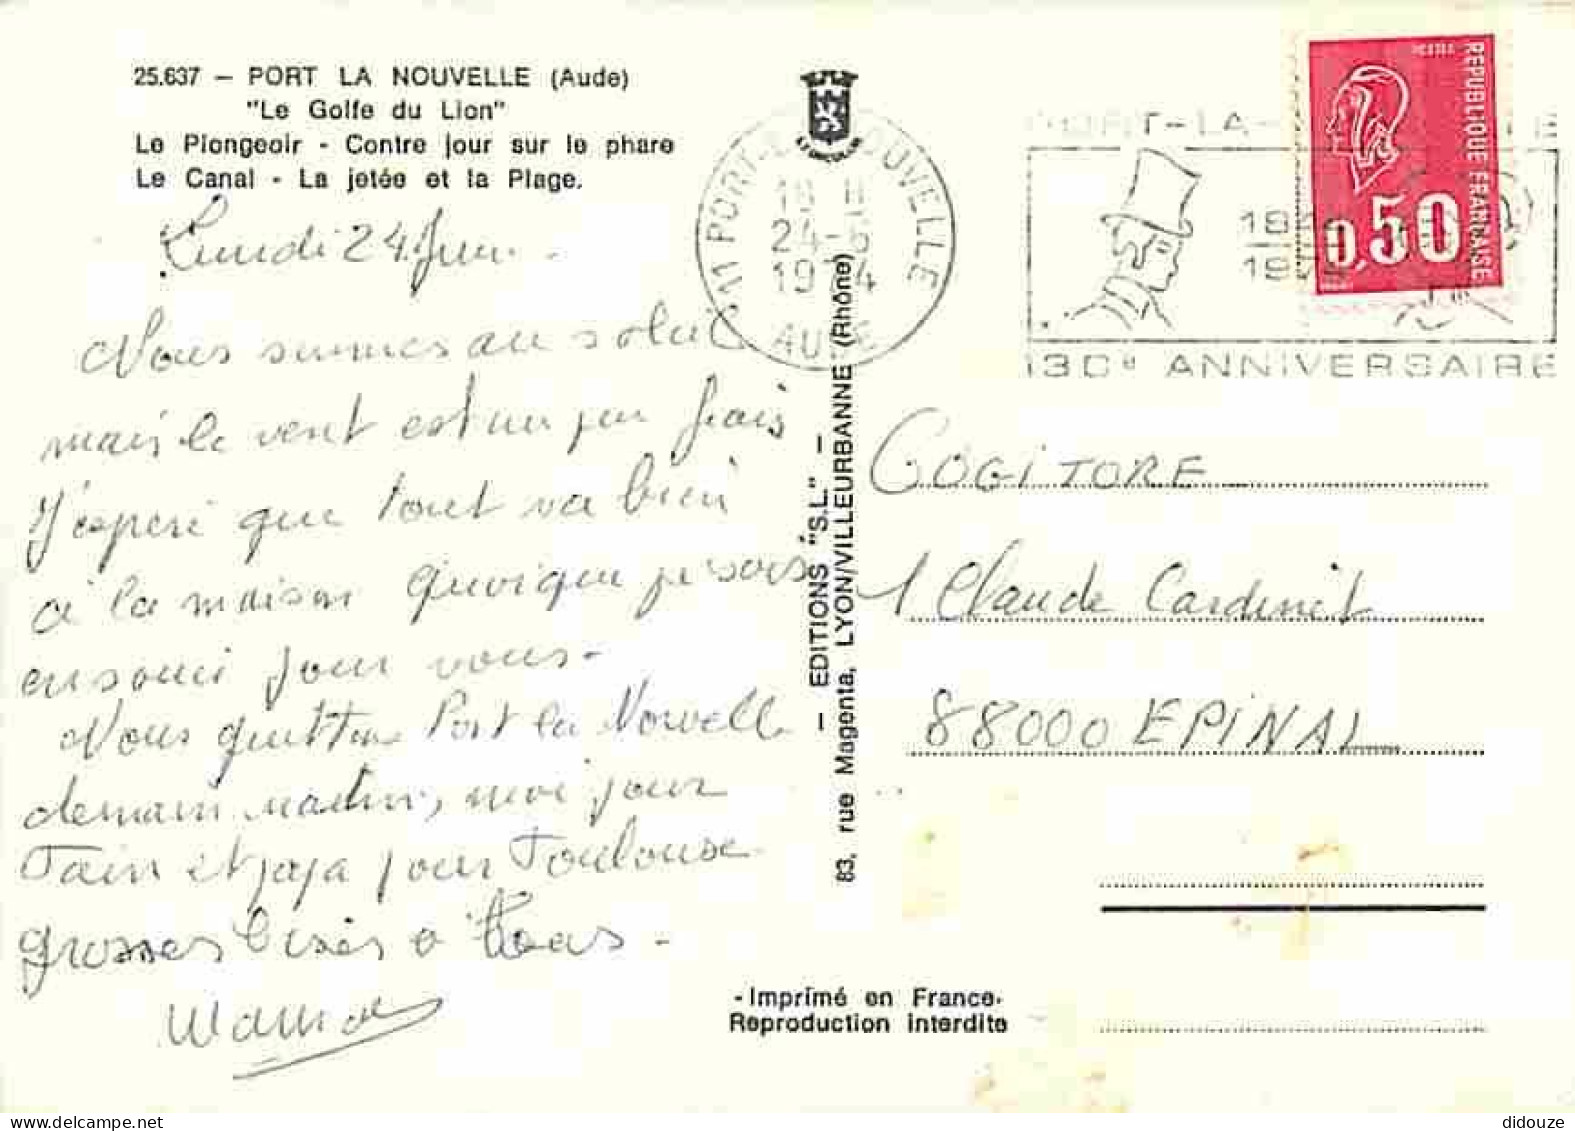 25.637 — PORT LA NOUVELLE (Aude)
"Le Golfe du Lion"
Le Plongeoir - Contre jour sur le phare
Le Canal - La jetée et la Plage.
Lundi 24 Juin.
Nous sommes au soleil
mais le vent est un peu frais
J'espère que tout va bien
à la maison quoique je sois
en souci pour vous -
Nous quittons Port la Nouvelle
demain matin, moi pour
Tain et papa pour Toulouse
grosses bises à tous -
Maman
11 PORT-LA-NOUVELLE
18 H
24-6
1974
AUDE
PORT-LA-
1974
130e ANNIVERSAIRE
REPUBLIQUE FRANÇAISE
0,50
— EDITIONS "S.L." —
83, rue Magenta, LYON/VILLEURBANNE (Rhône)
COGITORE
1 Claude Cardinet
88000 EPINAL
-Imprimé en France-
Reproduction interdite
didouze